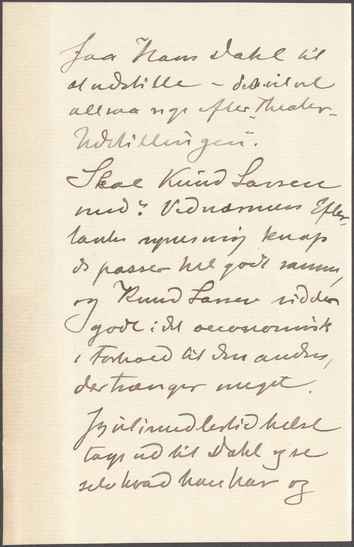 faa Hans Dahl til
at udstille – det vil vel
allsaa sige efter "Theater-
Udstillingen".
Skal Knud Larsen
med? Ved nærmere Efter-
tanke synes mig knap
de passer hel godt samme,
og Knud Larsen sidder
godt i det oeconomisk
i Forhold til den anden,
der trænger meget.
Jeg vil imidlertid helst
tage ud til Dahl og se
selv hvad han har og